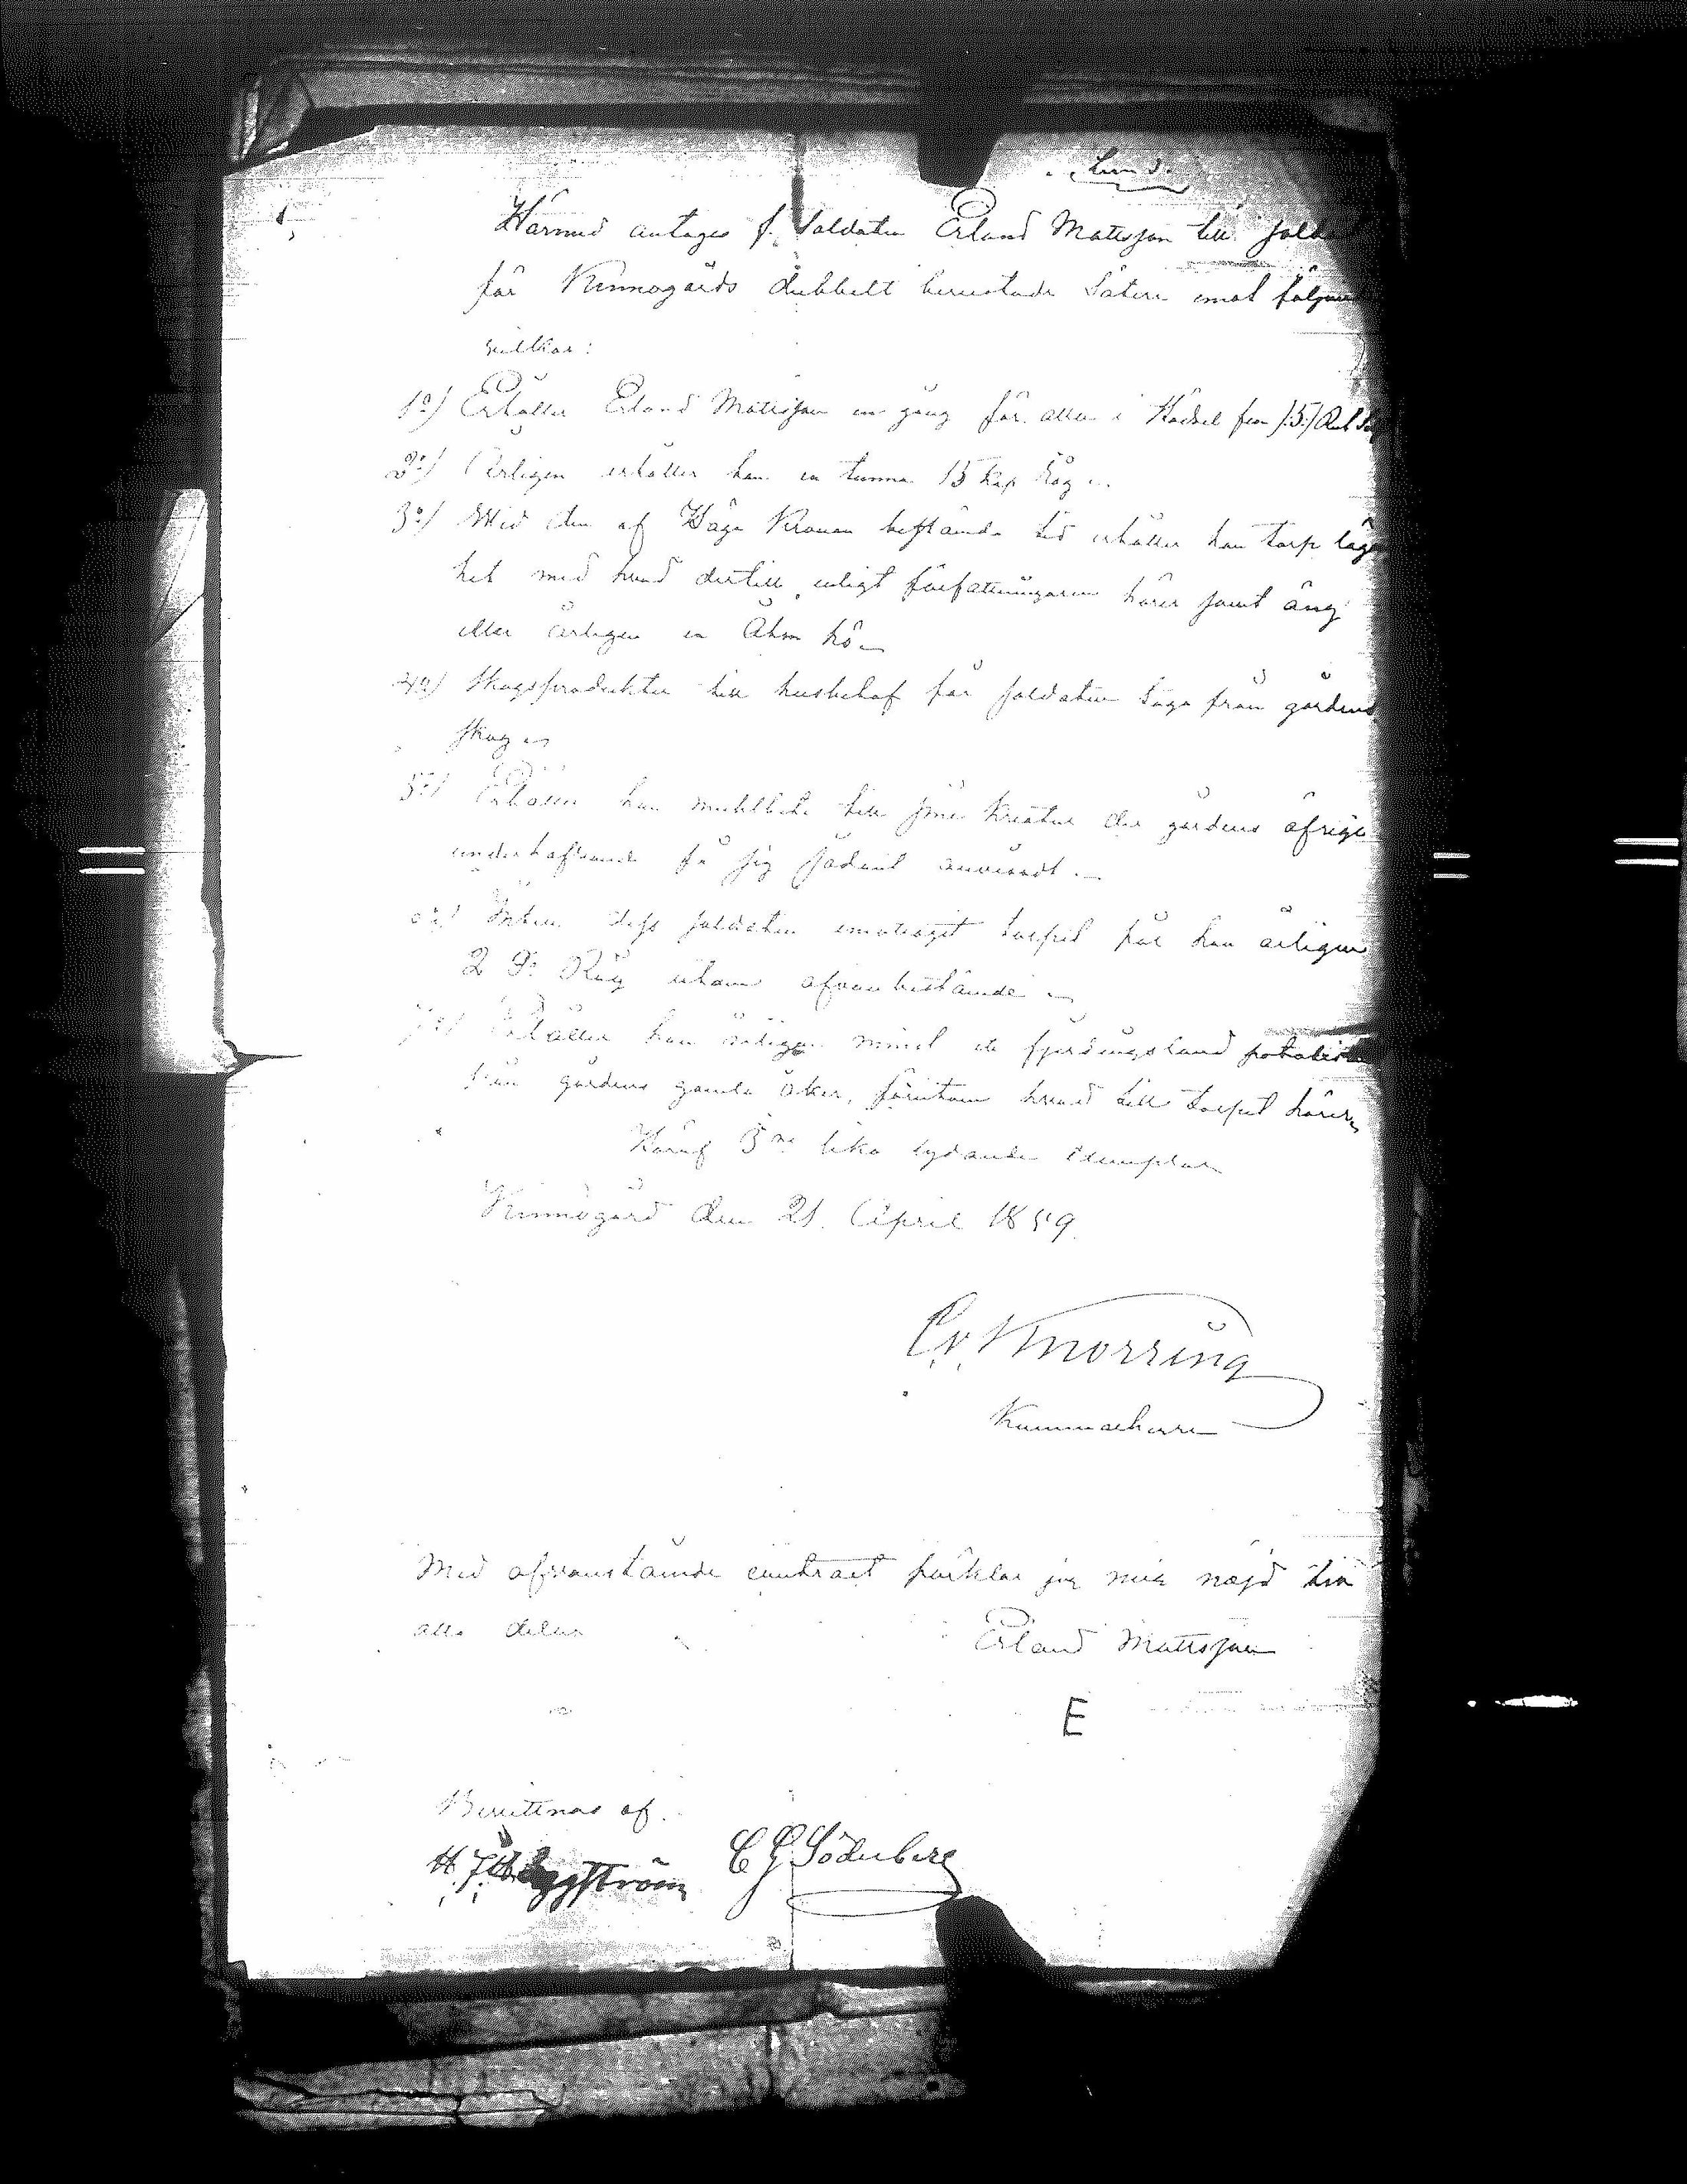 Lund.
Härmed antages f. Soldaten Erland Mattsson till soldat
för Kinnogårds dubbelt berustade Säteri emot följande
villkor:
1o/ Erhåller Erland Mattsson en gång för alla i Städsel fem /:5:/ Rub
2o/ Årligen erhåller han en tunna 15 kap Råg
3o/ Wid den af Höga Kronan bestämda tid erhåller han torp läg
het med hvad dertill enligt författningarne hörer samt äng
eller årligen en Åhm hö
4o/ Skogsprodukter till husbehof får soldaten taga från gårdens
skog
5o/ Erhåller han muhlbete till sine kreatur der gårdens öfrige
underhafvande få sig sådant anvisadt.
6o/ Intill dess soldaten emottagit torpet får han årligen
2 Råg utom ofvanbestämde
7o/ Erhåller han årligen minst ett fjerdingsland potatis
från gårdens gamla åker, förutom hvad till torpet hörer
Häraf 3ne lika lydande exemplar
Kinnogård den 21. April 1859.
C. v. Knorring
Kammarherre
Med ofvanstående contract förklar jag mig nöjd till
alla delar
Erland Mattsson
E
Bevittnas af.
C G Söderberg